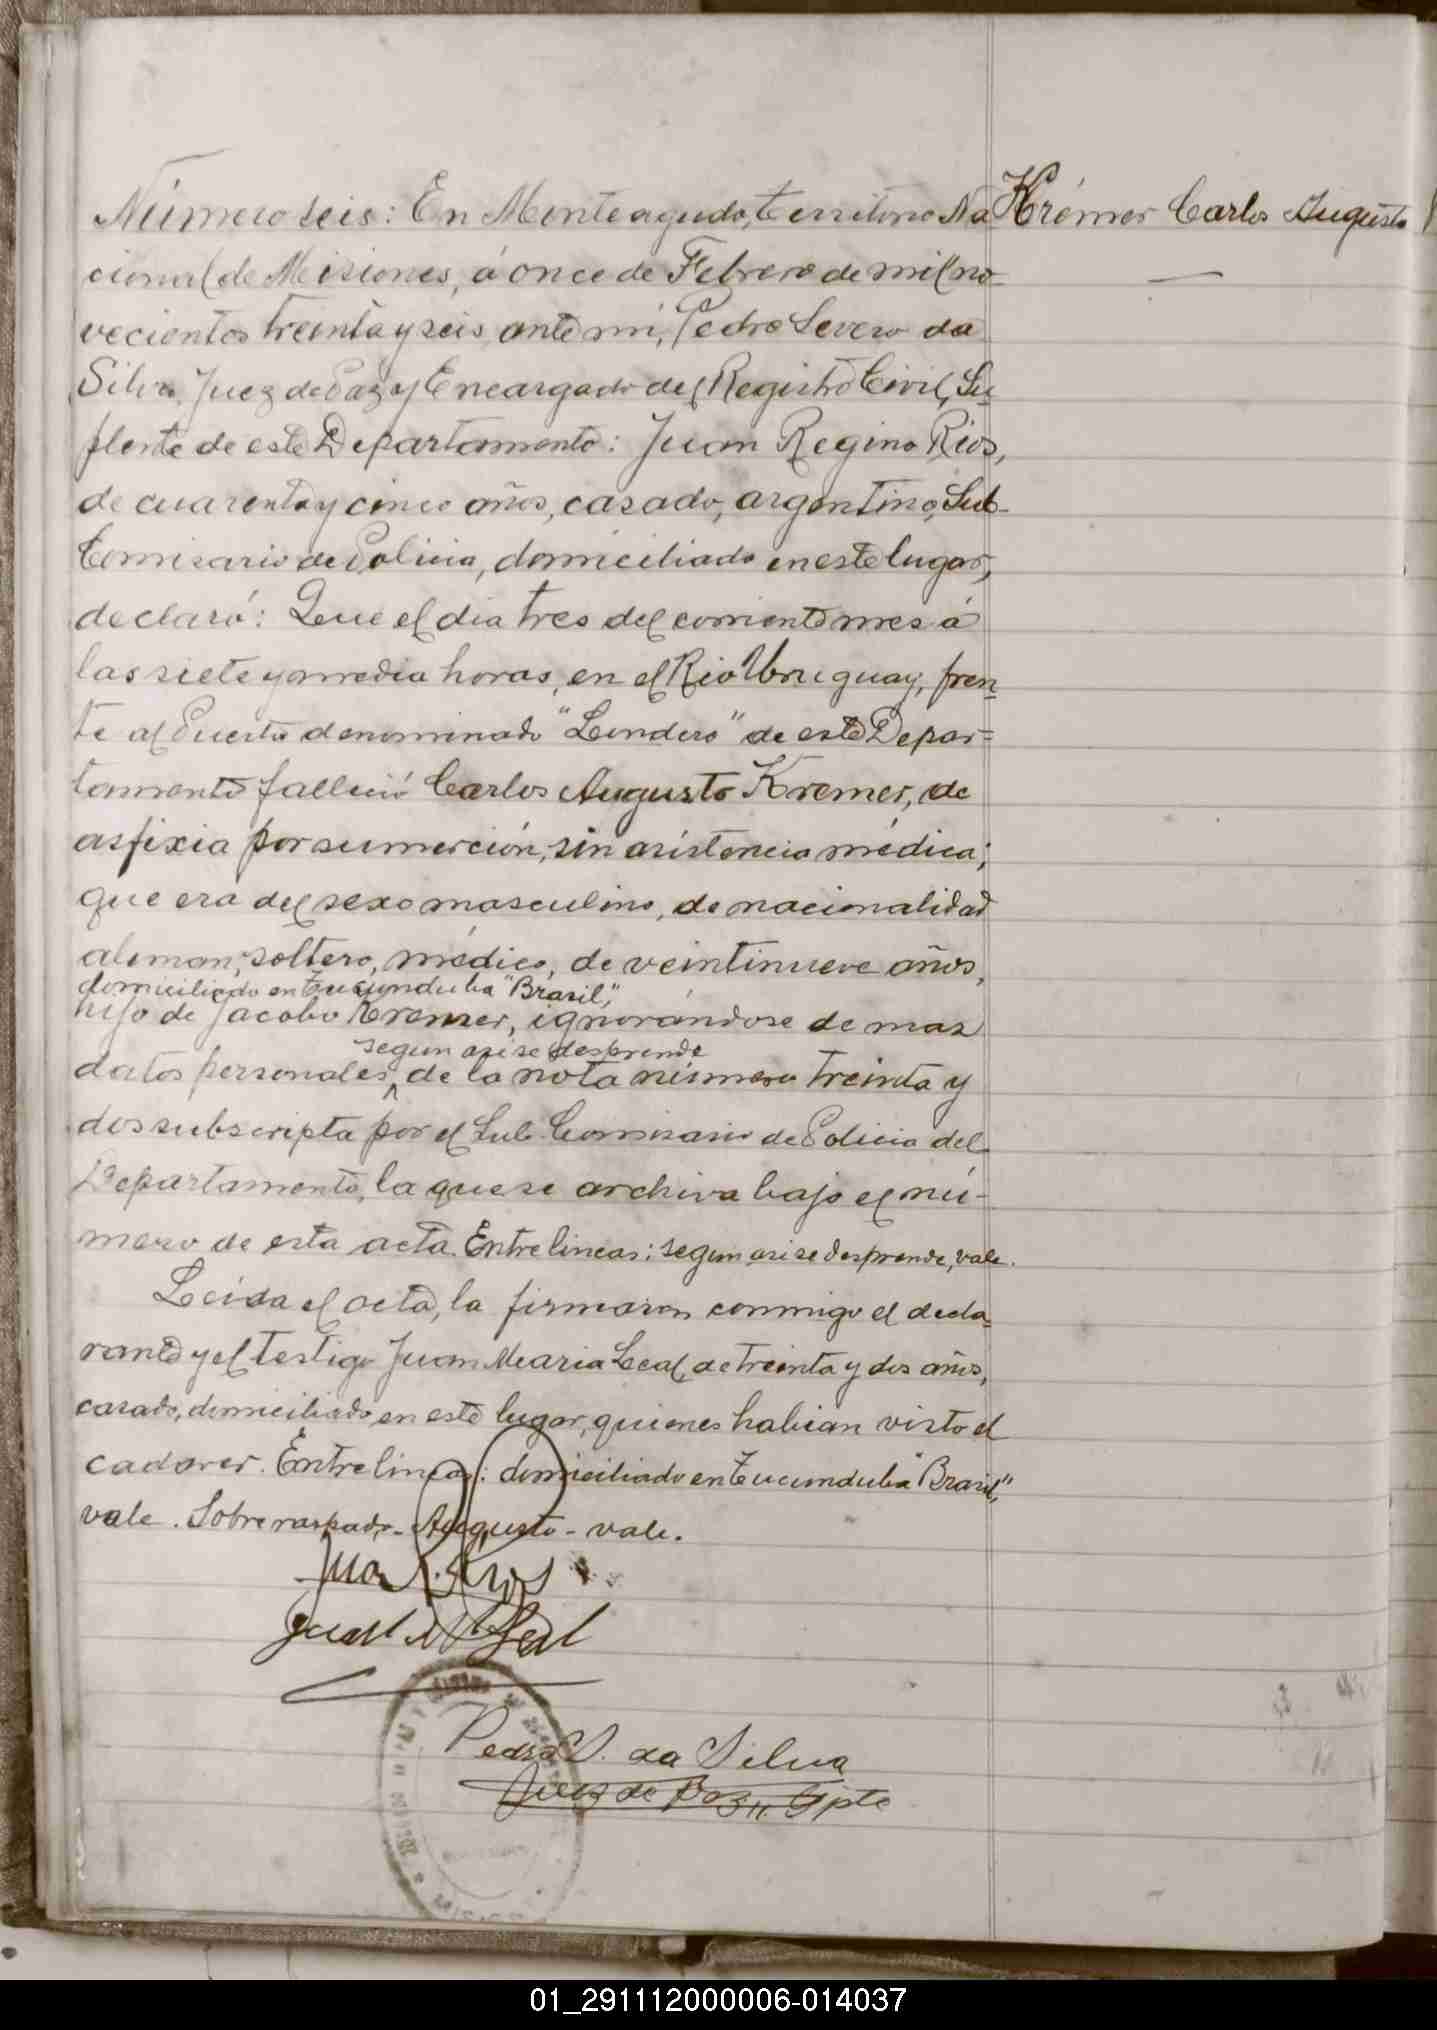 Número seis: En Monteagudo, territorio Na
cional de Misiones, á once de Febrero de mil no-
vecientos treinta y seis, ante mi, Pedro Severo da
Silva, Juez de Paz y Encargado del Registro Civil, Su-
plente de este Departamento: Juan Regino Rios,
de cuarenta y cinco años, casado, argentino, Sub-
Comisario de Policia, domiciliado en este lugar,
declaró: Que el dia tres del corriente mes á
las siete y media horas, en el Rio Uruguay, fren-
te al Puerto denominado "Londero" de este Depar=
tamento falleció Carlos Augusto Kremer, de
asfixia por sumerción, sin asistencia médica;
que era del sexo masculino, de nacionalidad
aleman, soltero, médico, de veintinueve años,
domiciliado en Tucunduba "Brasil",
hijo de Jacobo Kremer, ignorándose de mas
segun asi se desprende
datos personales, de la nota número treinta y
dos subscripta por el Sub-Comisario de Policia del
Departamento, la que se archiva bajo el nú-
mero de esta acta. Entre lineas: segun asi se desprende, vale.
Leida el acta, la firmaron conmigo el decla-
rante y el testigo Juan Maria Leal, de treinta y dos años,
casado, domiciliado en este lugar, quienes habian visto el
cadaver. Entre lineas: domiciliado en Tucunduba "Brasil,"
vale. Sobre raspado - Augusto - vale.
Juan R. Rios
Juan M Leal
Pedro S. da Silva
Juez de Paz Splte
Krémer Carlos Augusto
01_291112000006-014037